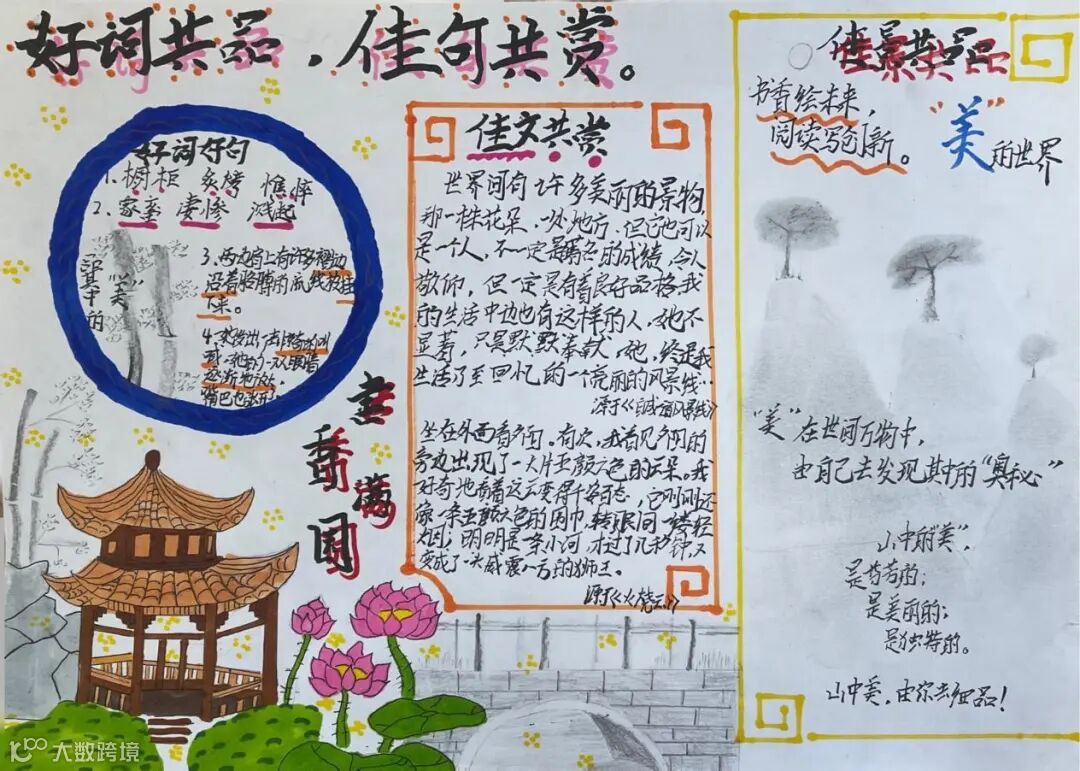 好词共品，佳句共赏。
好词好句
1. 橱柜 炙烤 憔悴
2. 家蚕 凄惨 溅起
3、两边肩上有许多褶边
沿着胳膊的
下来。
4、
嘴巴也张开了
其中的“美”
书香满园
佳文共赏
世界间有许多美丽的景物，
那一株花朵，一处地方，但它也可以
是一个人，不一定是著名的成绩，令人
敬仰，但一定是有着良好品格，我
的生活中边也有这样的人，她不
显著，只是默默奉献，她，终是我
生活了至回忆的一个亮丽的风景线…
坐在外面看夕阳。有次，我看见夕阳的
旁边出现了一大片五颜六色的云朵。我
好奇地看着这云变得千姿百态，它刚刚还
像一条五颜六色的围巾，转眼间一缕轻
烟；明明是一条小河，才过了几秒钟，又
变成了一头威震八方的狮王。
源于《火烧云》
佳景共品
书香绘未来，
阅读写创新。
“美”的世界
“美”在世间万物中，
由自己去发现其中的“奥秘”
山中的“美”，
是芬芳的；
是美丽的；
是独特的。
山中美，由你去细品！
大数跨境